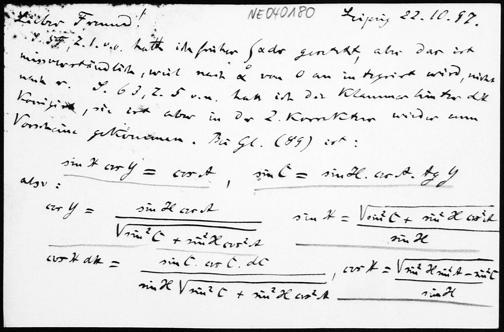 NE040180
Lieber Freund! Leipzig 22.10.97.
S. 57, Z. 1. v. o. hatte ich früher gesetzt, aber das ist
missverständlich, weil nach α von 0 an integriert wird, nicht
nach r. S. 63, Z. 5 v. u. hatte ich die Klammer hinter dK
korrigiert, sie ist aber in der 2. Korrektur wieder zum
Vorscheine gekommen. Bei Gl. (49) ist:
sin X cos Y = cos A , sin C = sin H. cos A. tg Y
also:
cos Y = sin H cos A / √sin²C + sin²H cos²A sin X = √sin²C + sin²H cos²A / sin H
cos X dX = sin C. cos C. dC / sin H √sin²C + sin²H cos²A , cos X = √sin²H sin²A − sin²C / sin H